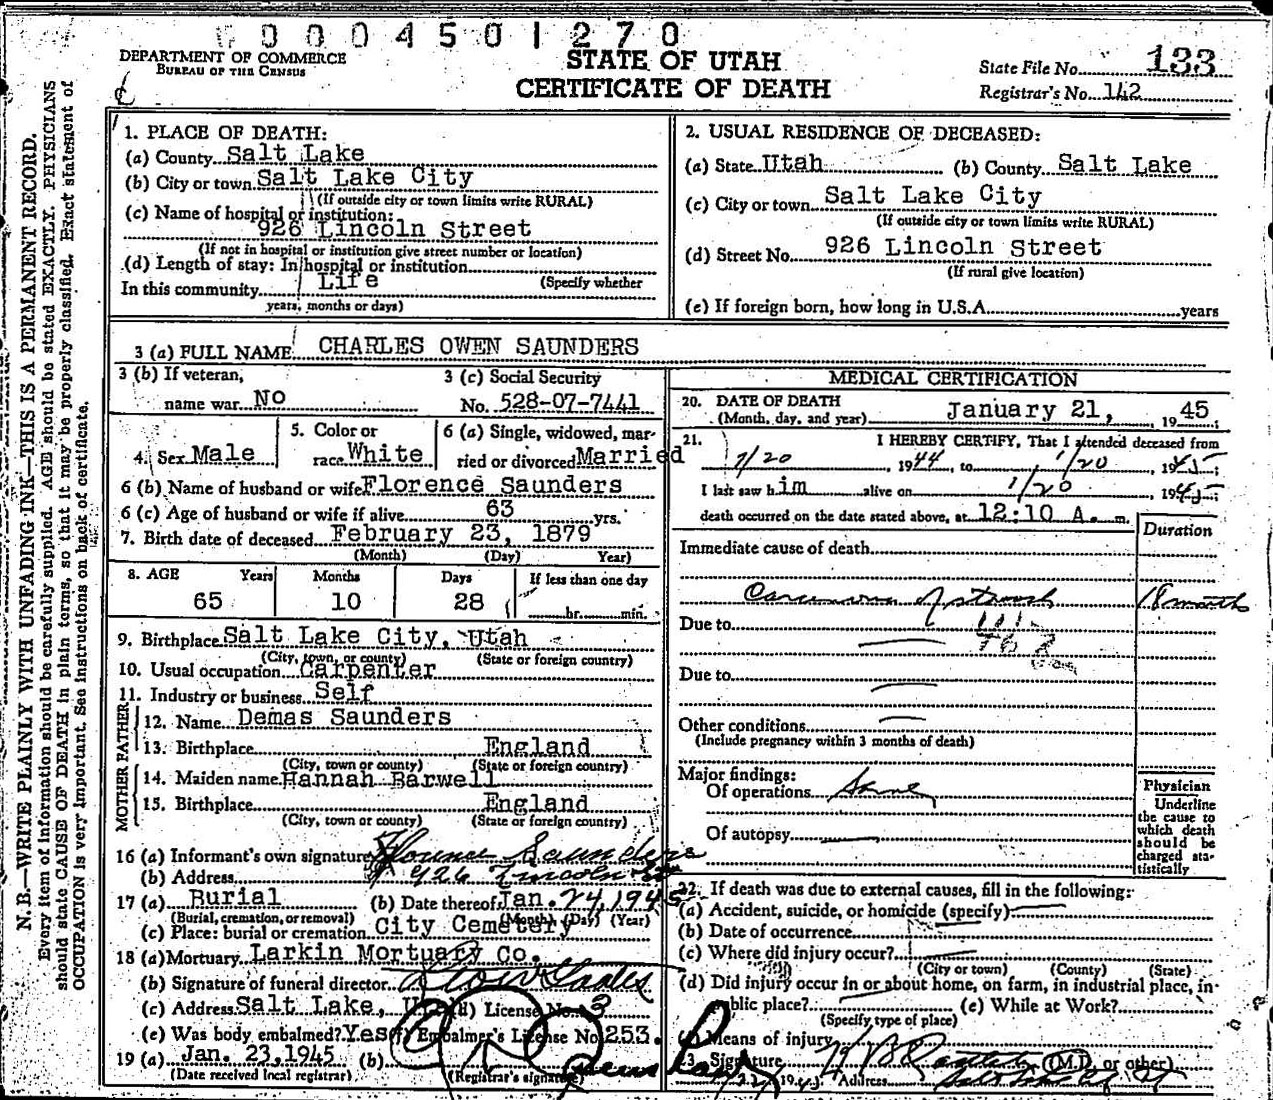 0004501270
DEPARTMENT OF COMMERCE
BUREAU OF THE CENSUS
STATE OF UTAH
CERTIFICATE OF DEATH
State File No. 133
Registrar's No. 142
N. B.—WRITE PLAINLY WITH UNFADING INK—THIS IS A PERMANENT RECORD.
Every item of information should be carefully supplied. AGE should be stated EXACTLY. PHYSICIANS
should state CAUSE OF DEATH in plain terms, so that it may be properly classified. Exact statement of
OCCUPATION is very important. See instructions on back of certificate.
1. PLACE OF DEATH:
(a) County Salt Lake
(b) City or town Salt Lake City
(If outside city or town limits write RURAL)
(c) Name of hospital or institution:
926 Lincoln Street
(If not in hospital or institution give street number or location)
(d) Length of stay: In hospital or institution
(Specify whether
In this community Life
years, months or days)
2. USUAL RESIDENCE OF DECEASED:
(a) State Utah (b) County Salt Lake
(c) City or town Salt Lake City
(If outside city or town limits write RURAL)
(d) Street No. 926 Lincoln Street
(If rural give location)
(e) If foreign born, how long in U.S.A. years
3 (a) FULL NAME CHARLES OWEN SAUNDERS
3 (b) If veteran,
name war No
3 (c) Social Security
No. 528-07-7441
4. Sex Male
5. Color or
race White
6 (a) Single, widowed, mar-
ried or divorced Married
6 (b) Name of husband or wife Florence Saunders
6 (c) Age of husband or wife if alive 63 yrs.
7. Birth date of deceased February 23, 1879
(Month) (Day) Year)
8. AGE Years Months Days If less than one day
65 10 28 hr. min.
9. Birthplace Salt Lake City, Utah
(City, town, or county) (State or foreign country)
10. Usual occupation Carpenter
11. Industry or business Self
FATHER
12. Name Demas Saunders
13. Birthplace England
(City, town or county) (State or foreign country)
MOTHER
14. Maiden name Hannah Barwell
15. Birthplace England
(City, town or county) (State or foreign country)
16 (a) Informant's own signature Florence Saunders
(b) Address 926 Lincoln St
17 (a) Burial (b) Date thereof Jan. 24, 1945
(Burial, cremation, or removal) (Month) (Day) (Year)
(c) Place: burial or cremation City Cemetery
18 (a) Mortuary Larkin Mortuary Co.
(b) Signature of funeral director
(c) Address Salt Lake, (d) License No. 3
(e) Was body embalmed? Yes (f) Embalmer's License No. 253.
19 (a) Jan. 23, 1945 (b)
(Date received local registrar) (Registrar's signature)
MEDICAL CERTIFICATION
20. DATE OF DEATH
(Month, day, and year) January 21, 1945
21. I HEREBY CERTIFY, That I attended deceased from
7/20, 1944, to 1/20, 1945;
I last saw him alive on 1/20, 1945;
death occurred on the date stated above, at 12:10 A. m.
Duration
Immediate cause of death
Carcinoma of stomach 18 months
Due to
Due to
Other conditions
(Include pregnancy within 3 months of death)
Major findings:
Of operations Same
Of autopsy
Physician
Underline
the cause to
which death
should be
charged sta-
tistically
22. If death was due to external causes, fill in the following:
(a) Accident, suicide, or homicide (specify)
(b) Date of occurrence
(c) Where did injury occur?
(City or town) (County) (State)
(d) Did injury occur in or about home, on farm, in industrial place, in
public place? (e) While at Work?
(Specify type of place)
Means of injury
Signature (M.D. or other)
Address Salt Lake City, Ut